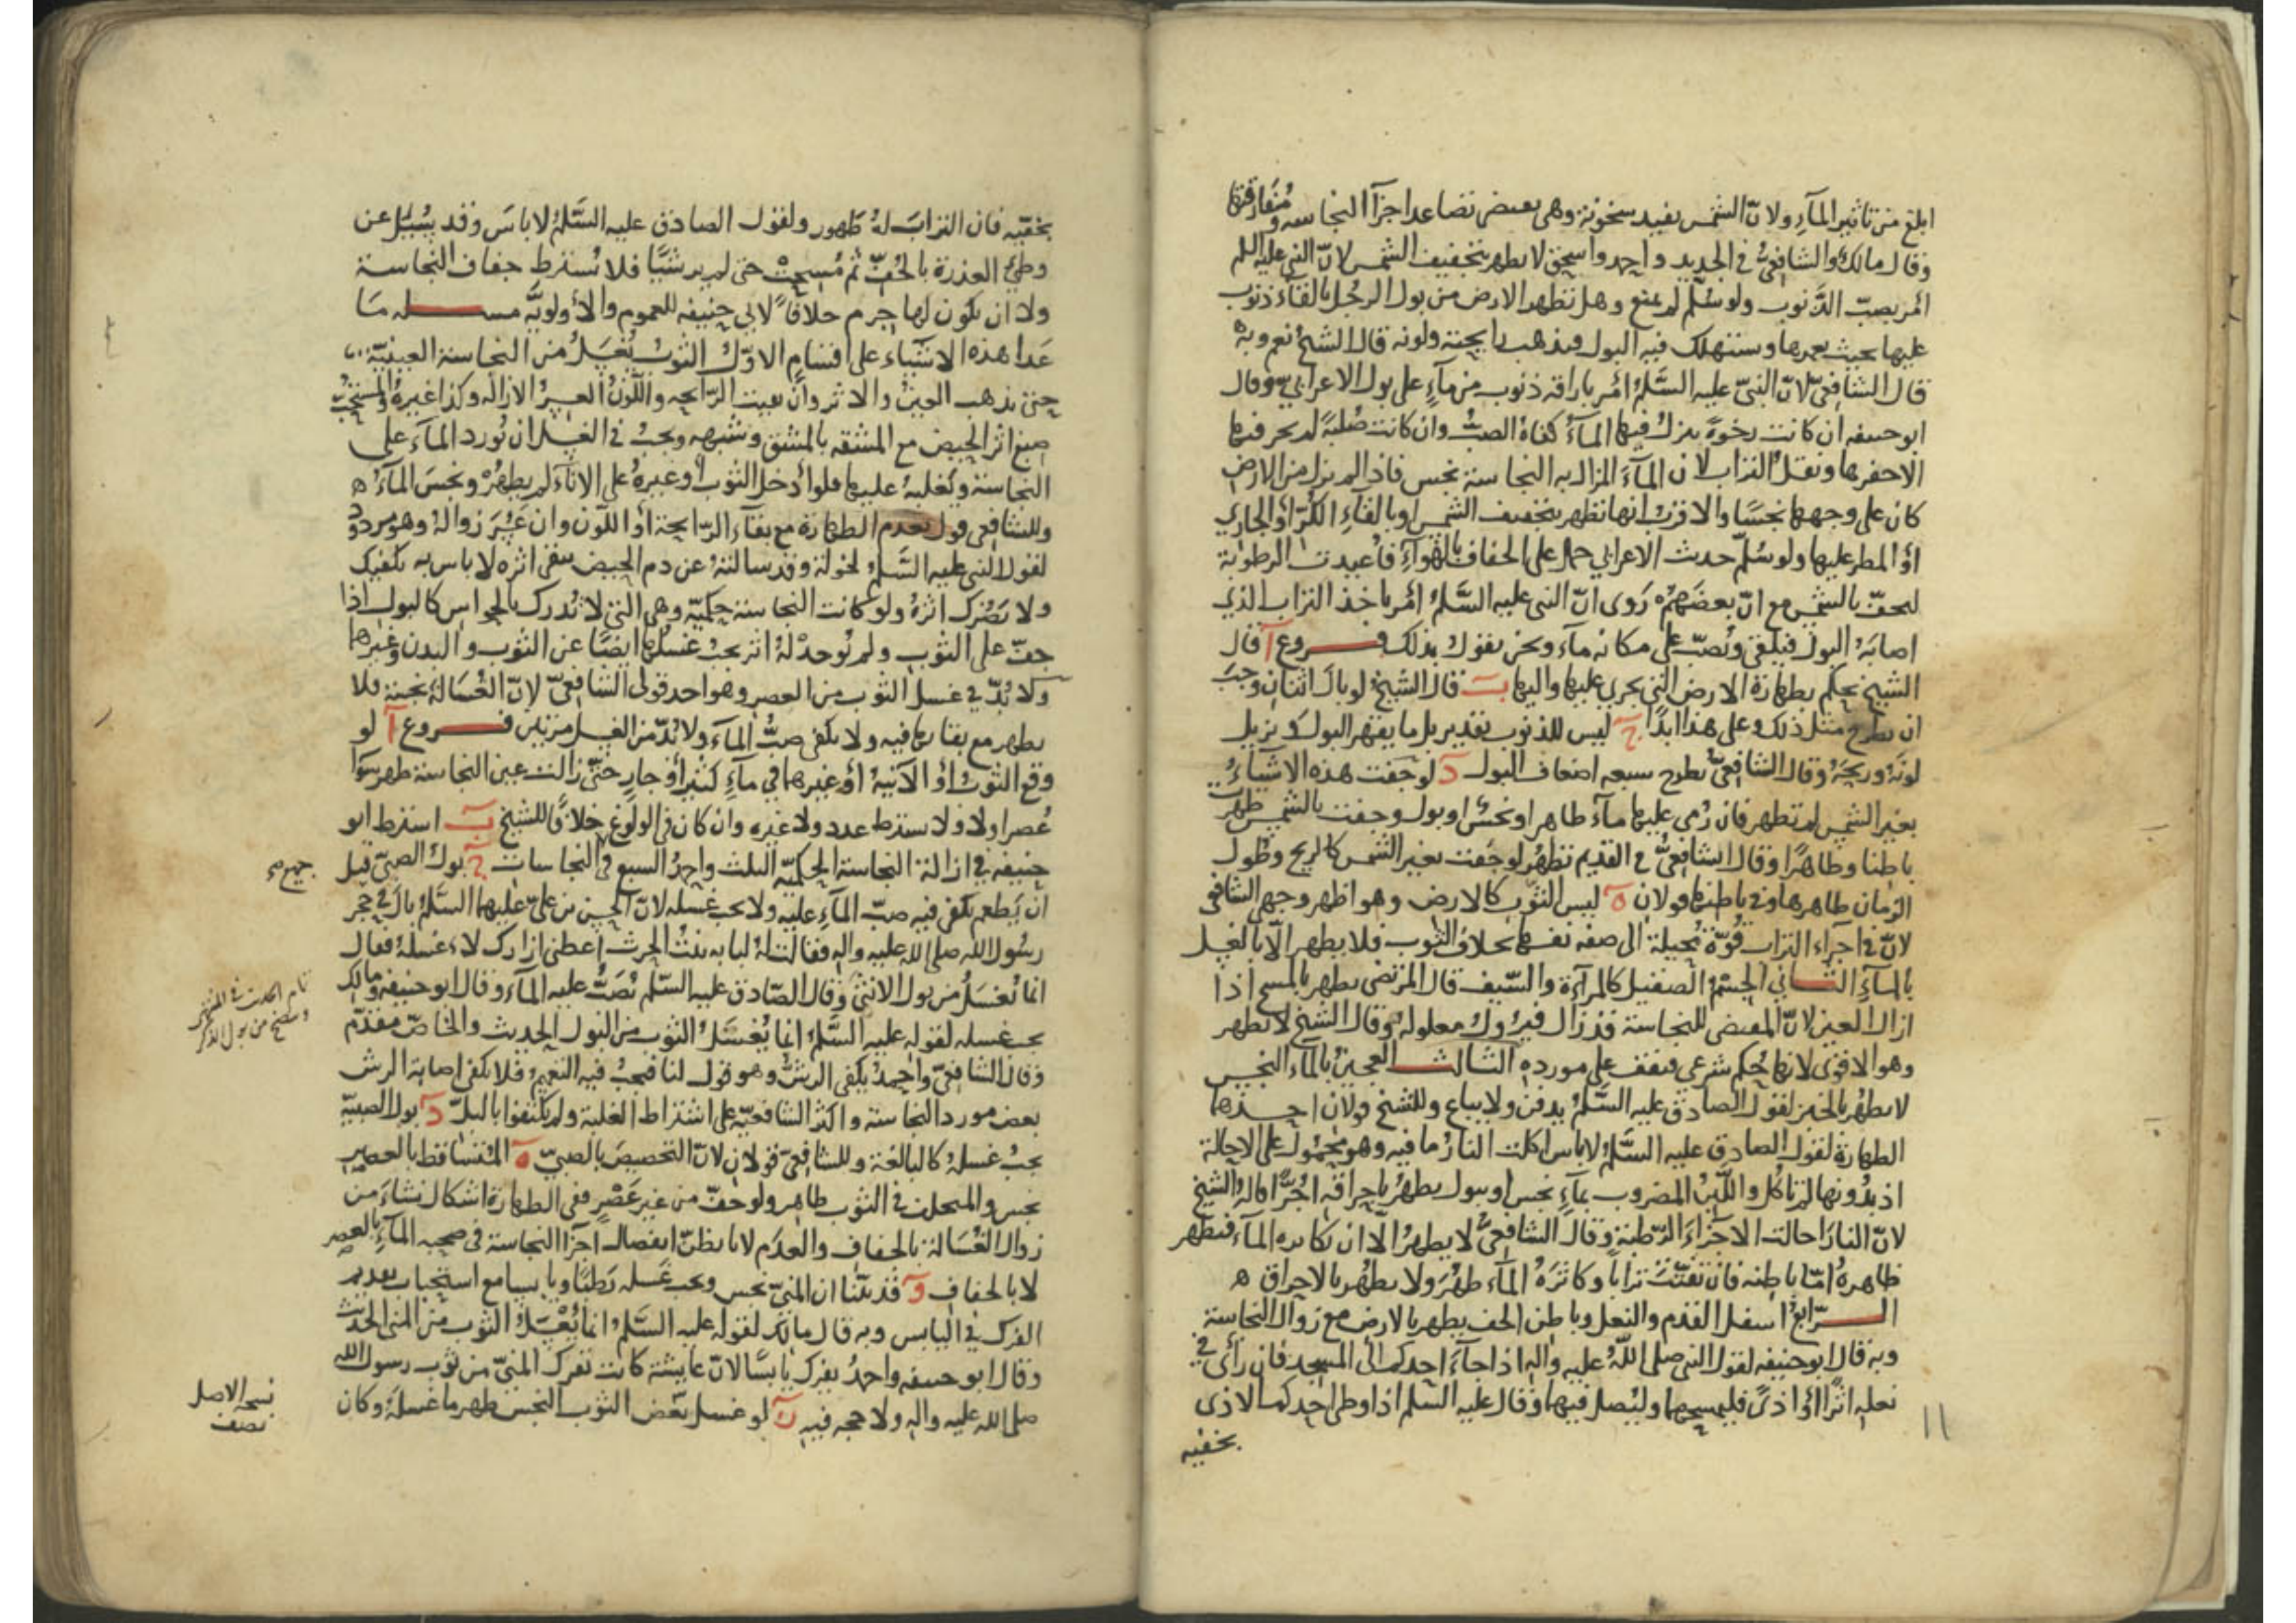 ابلغ من تاثير المآءِ ولانّ الشمس يفيد سخونةً وهي تقتضي تصاعد اجزآ النجاسه ومُفارقتها
وقال مالك والشافعيُّ في الجديد واحمد واسحق لا يطهر بتجفيف الشمس لانّ النبي عليه السلم
امر بصبّ الذَّنوب ولو سُلّم لم يمنع وهل تطهر الارض من بول الرجُل بالقآء ذنوب
عليها بحيث يقهرها وستهلك فيه البول فيذهب رايحته ولونه قال الشيخ نعم وبه
قال الشافعيّ لانّ النبيّ عليه السَّلمُ امر باراقه ذنوب من مآءٍ على بول الاعرابيّ وقال
ابو حنيفه ان كانت رخوةً ينزل فيها المآءُ كفاهُ الصبُّ وان كانت صُلبةً لم يجز فيها
الا حفرها ونقل التراب لانّ المآءَ المزال به النجاسة نجس فاذا لم يزل من الارض
كان على وجهها نجسًا والاقرب انها تطهر بتجفيف الشمس او بالقآءِ الكُرّ او الجاري
اوُ المطر عليها ولو سُلّم حديث الاعرابي حمل على الجفاف بالهوآءِ فاُعيدت الرطوبة
لتجفّ بالشمس مع انّ بعضَهمْ رَوى انّ النبي عليه السَّلمُ اَمر باخذ التراب الذي
اصابَهُ البول فيلقي ويُصبّ على مكانه مآء ونحن نقول بذلك فروع آ قال
الشيخ يحكم بطهارة الارض التي يجري عليها واليها ب قال الشيخ لو بالَ اثنان وجبَ
ان يطرح مثل ذلك وعلى هذا ابدًا ج ليس للذنوب تقدير بل ما يقهر البول ويزيل
لونَهُ وريحَهُ وقال الشافعيُّ يطرح سبعه اضعاف البول د لو جفت هذه الاشياءُ
بغير الشمس لم تطهر فان رُمي عليها مآءً طاهر او نجس او بول وجفت بالشمس طهرت
باطنا وظاهرًا وقال الشافعيُّ في القديم تطهُر لو جَفت بغير الشمس كالريح وطول
الزمان ظاهرها وفي باطنها قولان ه ليس الثوب كالارض وهو اظهر وجهي الشافعي
لانّ في اجزاء التراب قُوّة مُحيلة الى صفه نفسها بخلاف الثوب فلا يطهر الّا بالغسل
بالمآءِ الثاني الجسْمُ الصقيل كالمرآةِ والسّيف قال المرتضى يطهر بالمسح اذا
ازال العين لانّ المقتضي للنجاسة قد زال فيزول معلوله وقال الشيخ لا تطهر
وهو الاقوى لانها حُكم شرعي فيقف على مورده الثالث العجين بالمآء النجس
لا يطهُر بالخبز لقول الصادق عليه السَّلمُ يدفن ولا يباع وللشيخ قولان احدهما
الطهارة لقول الصادق عليه السَّلمُ لا باس اكلت النارُ ما فيه وهو محمُول على الاحالة
اذ بدُونها لم تاكُل واللَّبِنُ المضروب بمآءٍ نجس او ببول يطهُر باحراقه آجُرًّا قالهُ الشيخ
لانّ النارَ احالت الاجزاءَ الرّطبة وقال الشافعيُّ لا يطهرُ الّا ان يكاثره المآء فيطهر
ظاهرهُ امّا باطنه فان تفتّتْ تراباً وكاثَرَهُ المآء طهُرَ ولا يطهُر بالاحراق ه
الرّابع اسفل القدم والنعل وباطن الخف يطهر بالارض مع زوال النجاسة
وبه قال ابو حنيفه لقول النبي صلى اللهُ عليه واله اذا جآءَ احدكم الى المسجد فان رأى في
نعله اثرًا اوُ اذىً فليمسحها وليُصل فيها وقال عليه السَّلم اذا وطى احدكم الاذى
بخفيه
١١
بخفّيه فان الترابَ لهُ طَهور ولقول الصادق عليه السَّلمُ لا باسَ وقد سُئِل عن
وطئ العذرة بالخُفّ ثم مُسحتْ حتى لم ير شيئًا فلا يُشترط جفاف النجاسة
ولا ان يكون لها جرم خلافًا لابي حنيفه للعموم والاولويَّه مسله مَا
عَدا هذه الاشياء على اقسام الاوّل الثوبُ يُغسَلُ من النجاسة العينيّة
حتى يذهب العينُ والاثر وان بقيت الرّايحه واللّونُ العسِرُ الازاله وكذا غيرهُ والمستحبُّ
صبغ اثر الحيض مع المشقه بالمشق وشبهه ويجبُ في الغسل ان يُورد المآءَ على
النجاسة ويُغلبهُ عليها فلو اُدخل الثوب او غيرهُ على الانآءِ لم يطهُرْ ونجسَ المآءُ ه
وللشافعي قول بعدم الطهارة مع بقآء الرّايحة اوُ اللّون وان عَسُرَ زوالهُ وهو مردود
لقول النبي عليه السَّلمُ لخولة وقد سالتهُ عن دم الحيض يبقى اثره لا باس به يكفيك
ولا يَضُرك اثرهُ ولو كانت النجاسة حكميّة وهي التي لا تُدرك بالحواس كالبول اذا
جفّ على الثوب ولم يُوجدْ لهُ اثر يجبُ غسلُها ايضًا عن الثوب والبدن وغيرها
ولا بُدّ في غسل الثوب من العصر وهو احد قولي الشافعيّ لانّ الغُسالةَ نجسة فلا
يطهر مع بقايها فيه ولا يكفي صبُّ المآءَ ولا بُدّ من الغسل مرّتين فروع آ لو
وقع الثوبُ اوُ الآنيةُ اوُ غيرهما في مآءٍ كثير اوُ جارٍ حتّى زالت عين النجاسة طهر سوآ
عُصر او لا ولا يشترط عدد ولا غيره وان كان في الولوغ خلافًا للشيخ ب اشترط ابو
حنيفه في ازالة النجاسة الحكميّه الثلث واحمدُ السبع في النجاسات ج بول الصبيّ قبل
ان يَطعم يكفي فيه صبّ المآءِ عليه ولا يجب غسله لانّ الحسين بن عليّ عليهما السَّلمُ بالَ في حجر
رسُول الله صلى الله عليه واله فقالت لهُ لبابه بنتُ الحرث اَعطني ازارك لاغسلهُ فقال
انما يُغسَلُ من بول الانثى وقال الصّادق عليه السَّلم يُصَبُّ عليه المآء وقال ابو حنيفه ومالك
يجب غسله لقوله عليه السَّلمُ انما يُغسَلُ الثوب من البول الحديث والخاصّ مقدّم
وقال الشافعيّ واحمدُ يكفي الرشّ وهو قول لنا فيجبُ فيه التعميم فلا يكفي اصابة الرش
بعض مورد النجاسة واكثر الشافعيّه على اشتراط الغلبة ولم يكتفوا بالبلّ د بول الصبيّه
يجبُ غسلهُ كالبالغة وللشافعيّ قولان لانّ التخصيصَ بالصبيّ ه المُتساقط بالعصر
نجس والمتخلف في الثوب طاهر ولو جفّ من غير عَصْرٍ ففي الطهارة اشكال ينشاءَ من
زوال الغُسالة بالجفاف والعدَم لانا نظنّ انفصال اجزآ النجاسة في صحبه المآءِ بالعصر
لا بالجفاف و قد بيّنا ان المنيّ نجس ويجب غسله رَطبًا ويابسا مع استحباب تقديم
الفرك في اليابس وبه قال مالك لقوله عليه السَّلمُ انما يُغسَلُ الثوب من المني الحديث
وقال ابو حنيفه واحمدُ يفرك يابسًا لانّ عايشة كانت تفرك المنيّ من ثوب رسول الله
صلى الله عليه واله ولا حجه فيه ز لو غسل بعض الثوب النجس طهر ما غسلهُ وكان
جميع صح
تمام الحديث في
وينضح من بول الذكر
نسخه الاصل
نصف